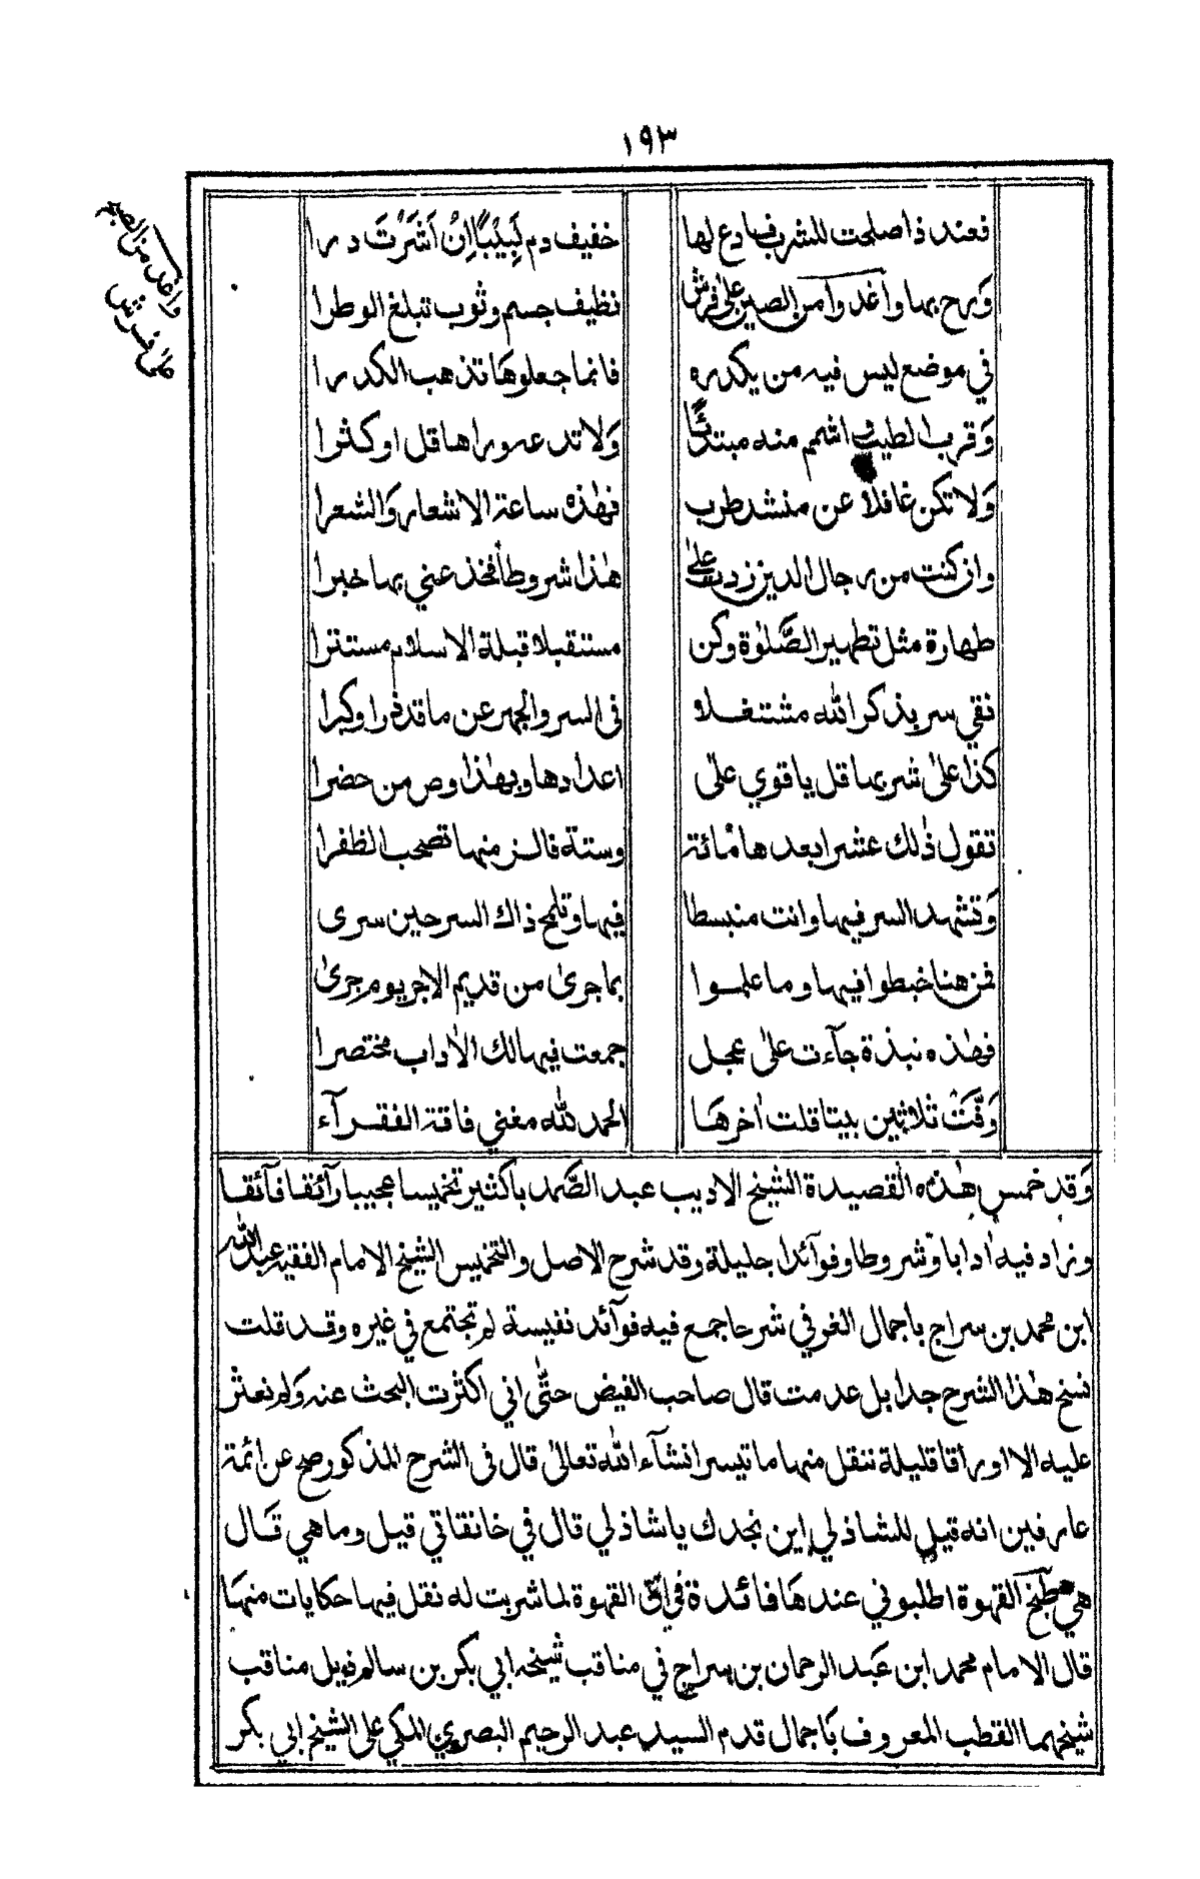 ١٩٣
فعند ذا صلحت للشرب فادع لها خفيف دم لَبِيْبًا اِنْ اَشَرْتَ درا
وَرح بها واغد وأمن الصين على فرش نظيف جسم وثوب تبلغ الوطرا
في موضع ليس فيه من يكدره فانما جعلوها تذهب الكدرا
وَقرب الطيب اشمم منه مبتدئًا وَلا تدعه وراها قل او كثرا
وَلا تكن غافلا عن منشد طرب فهٰذه ساعة الاشعار وَالشعرا
وان كنت من رجال الدين زدت علىٰ هٰذا شروطا فخذ عني بها خبرا
طهارة مثل تطهير الصَّلوٰة وكن مستقبلا قبلة الاسلام مستترا
نقي سر بذكر الله مشتغلا في السر والجهر عن ما قد قرا وكبرا
كذا علىٰ شربها قل يا قوي علىٰ اعدادها وبهٰذا وص من حضرا
تقول ذٰلك عشرا بعدها مائة وستة فالز منها تصحب الظفرا
وَتشهد السر فيها وانت منبسطا فيها وتلمح ذاك السر حين سرى
فمن هنا خبطوا فيها وما علموا بما جرىٰ من قديم الاجر يوم جرىٰ
فهٰذه نبذة جآءت علىٰ عجل جمعت فيها لك الاٰداب مختصرا
وَفَّتْ ثلاثين بيتا قلت اٰخرهَا الحمد لله مغني فاقة الفقرآء
وَقد خمس هٰذه القصيدة الشيخ الاديب عبد الصَّمد باكثير تخميسا عجيبا رآئقا فآئقا
وزاد فيه اٰدابا وَشروطا وفوآئدا جليلة وقد شرح الاصل والتخميس الشيخ الامام الفقيه عبد الله
ابن محمد بن سراج بأجمال الغرفي شرحا جمع فيه فوآئد نفيسة لم تجتمع في غيره وقد قلت
نسخ هٰذا الشرح جدا بل عدمت قال صاحب الفيض حتّٰى اني اكثرت البحث عنه وَلم نعثر
عليه الا اوراقا قليلة ننقل منها ما تيسر انشآء الله تعالىٰ قال في الشرح المذكور صح عن ائمة
عارفين انه قيل للشاذلي اين نجدك يا شاذلي قال في خانقاتي قيل وما هي قال
هي مطبخ القهوة اطلبوني عندهَا فائدة في انّ القهوة لما شربت له نقل فيها حكايات منهَا
قال الامام محمد ابن عَبد الرحمان بن سراج في مناقب شيخه ابي بكر بن سالم فويل مناقب
شيخهما القطب المعروف بَاجمال قدم السيد عبد الرحيم البصري المكي على الشيخ ابي بكر
واغد من الصبر
على فرش